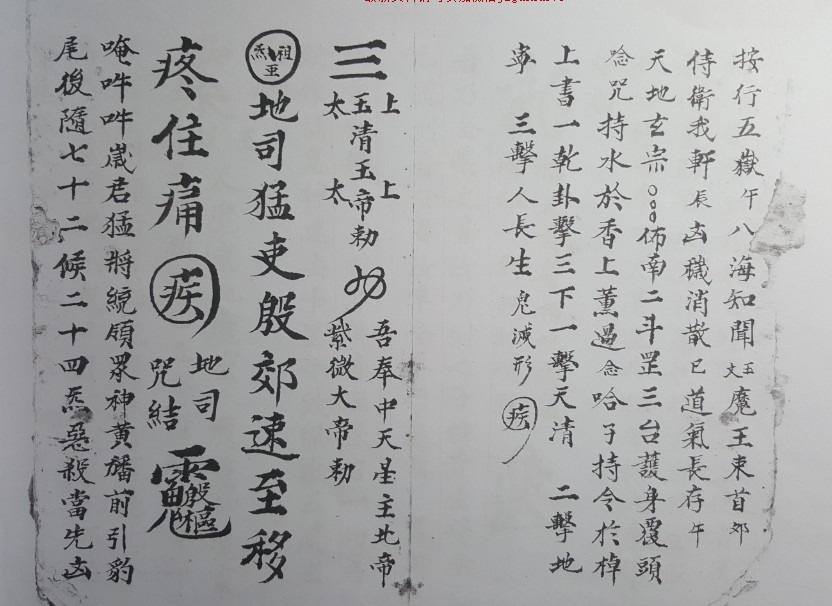 按行五嶽 午 八海知聞 玉文 魔王束首 卯
侍衛我軒 辰 凶穢消散 巳 道氣長存 午
天地玄宗 佈南二斗罡三台護身覆頭
念咒持水於香上薰過 念 哈子持令於棹
上書一乾卦擊三下一擊天清 二擊地
寧 三擊人長生鬼滅形 疾
吾奉中天星主北帝
紫微大帝勅
三
上 上
玉清玉帝勅
太 太
祖炁
地司猛吏殷郊速至移
疼住痛 疾
地司
咒結
唵吽吽嵗君猛將統領眾神黃旛前引豹
尾後隨七十二候二十四炁惡殺當先凶